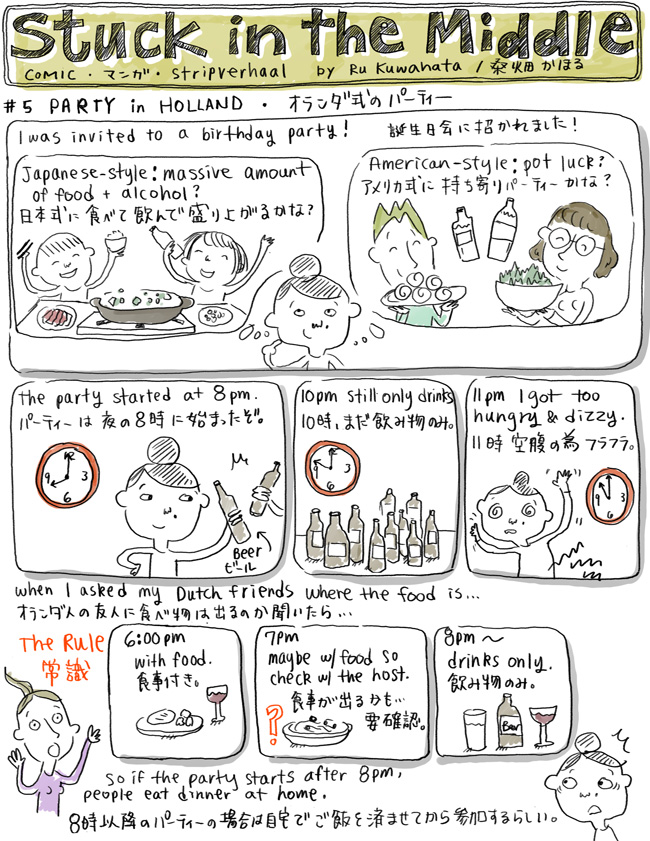 Stuck in the Middle
COMIC・マンガ・Stripverhaal by Ru Kuwahata / 桑畑かほる
#5 PARTY in HOLLAND ・ オランダ式のパーティー
I was invited to a birthday party!
誕生日会に招かれました!
Japanese-style: massive amount
of food + alcohol?
日本式に食べて飲んで盛り上がるかな?
American-style: pot luck?
アメリカ式に持ち寄りパーティーかな?
the party started at 8pm.
パーティーは夜の8時に始まったぞ。
12
9
3
6
Beer
ビール
10pm still only drinks
10時、まだ飲み物のみ。
12
9
3
6
11pm I got too
hungry & dizzy.
11時 空腹の為フラフラ。
12
9
3
6
when I asked my Dutch friends where the food is...
オランダ人の友人に食べ物は出るのか聞いたら...
The Rule
常識
6:00pm
with food.
食事付き。
7pm
maybe w/food so
check w/ the host.
食事が出るかも...
要確認。
?
8pm~
drinks only.
飲み物のみ。
Beer
so if the party starts after 8pm,
people eat dinner at home.
8時以降のパーティーの場合は自宅でご飯を済ませてから参加するらしい。